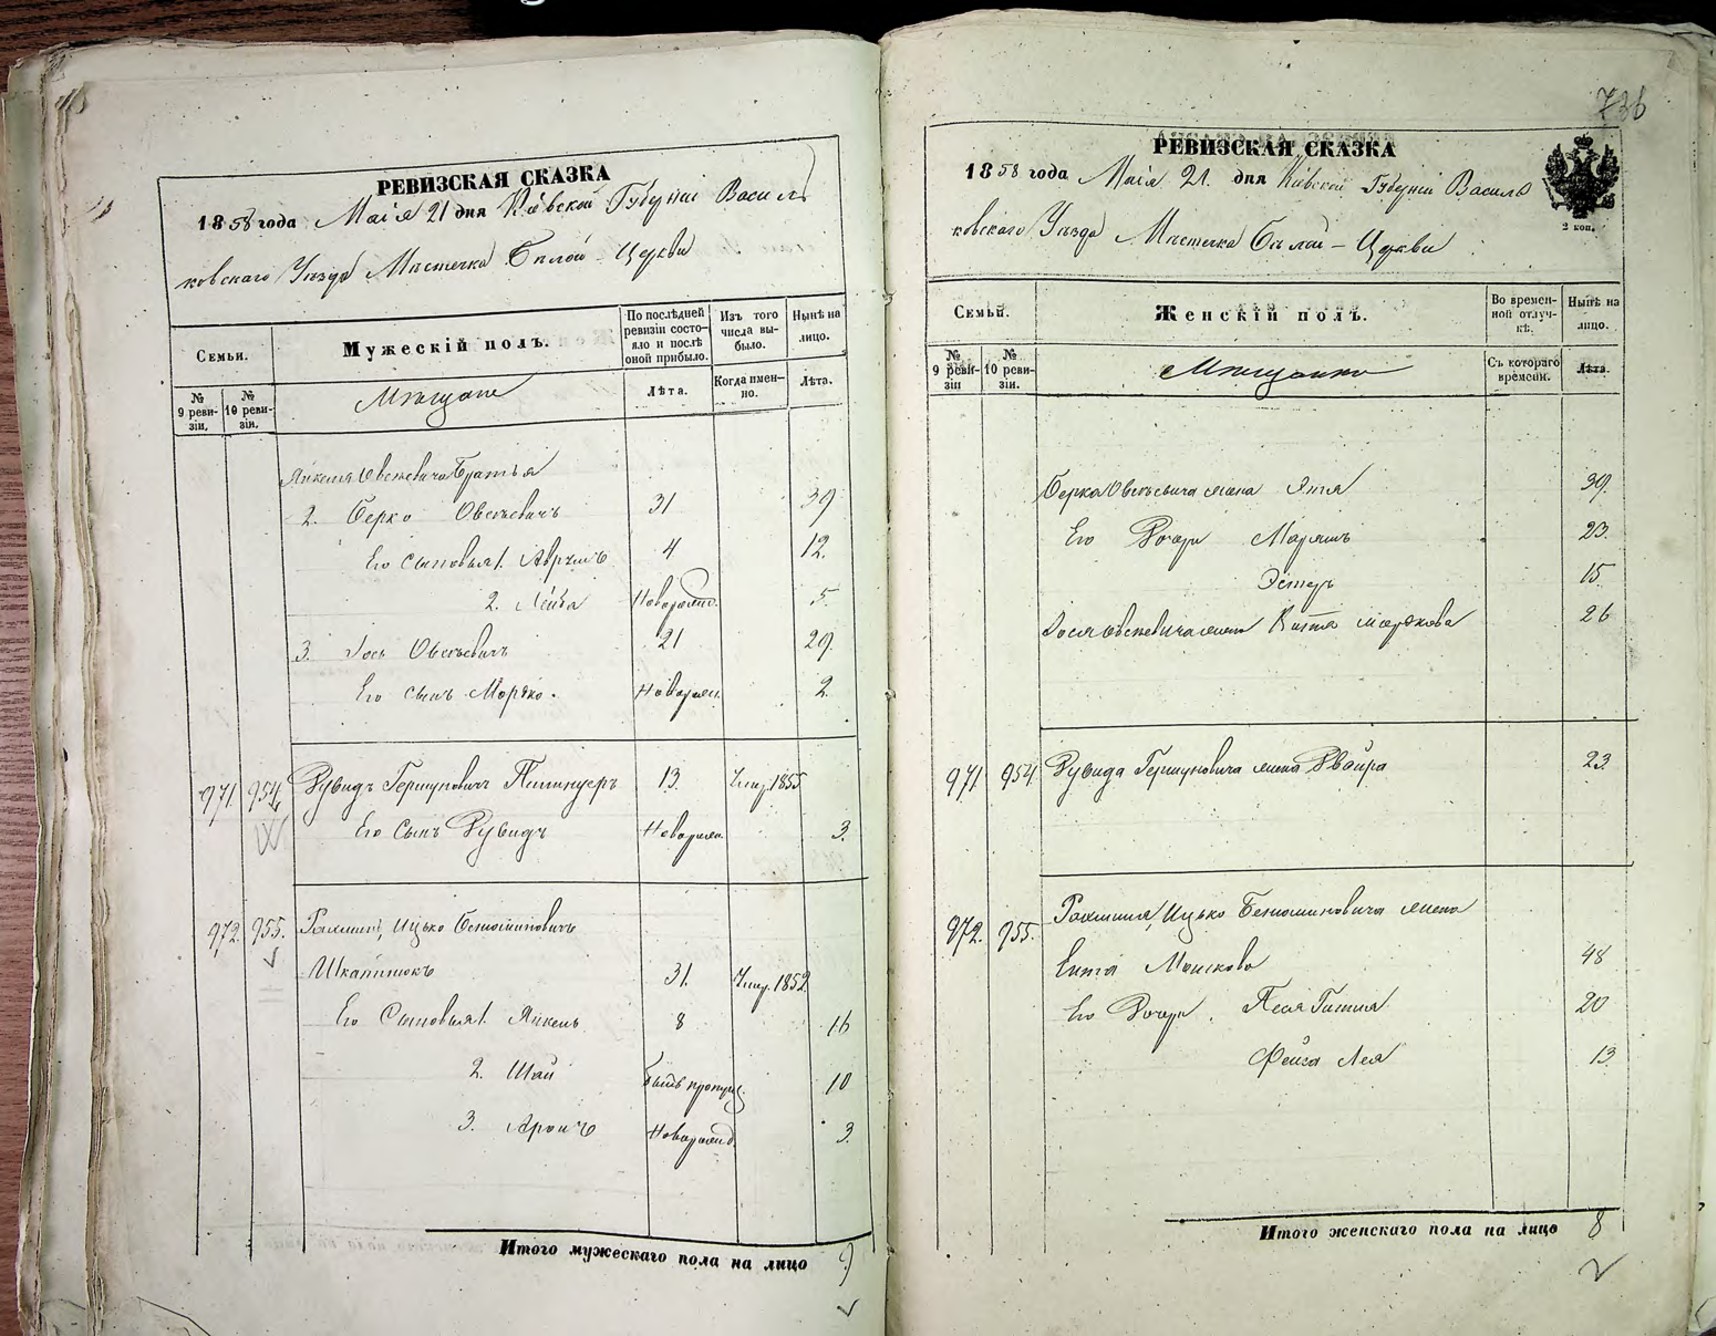 РЕВИЗСКАЯ СКАЗКА
1858 года Маія 21 дня Кіевской Губерніи Василь
ковскаго Уѣзда Мѣстечка Бѣлой-Церкви
Семьи.
Мужескій полъ.
По послѣдней ревизіи состояло и послѣ оной прибыло.
Изъ того числа выбыло.
Нынѣ на лицо.
№ 9 ревизіи.
№ 10 ревизіи.
Мѣщане
Лѣта.
Когда именно.
Лѣта.
Янкеля Овсеевича Братья
2. Берко Овсѣевичъ 31 39
Его Сыновья 1. Аврумъ 4 12.
2. Лейба Новорожд. 5.
3. Іось Овсѣевичъ 21 29.
Его сынъ Мортко. Новорожд. 2.
971. 954. Дувидъ Гершковичъ 13. Умер. 1855
Его Сынъ Дувидъ Новорожд. 3.
972. 955. Ицько Беніоминовичъ
Шкапнюкъ 31. Умер. 1852.
Его Сыновья 1. Янкель 8 16
2. Шай Былъ пропущ. 10
3. Аронъ Новорожд. 3.
Итого мужескаго пола на лицо 9
736
РЕВИЗСКАЯ СКАЗКА
1858 года Маія 21. дня Кіевской Губерніи Василь
ковскаго Уѣзда Мѣстечка Бѣлой-Церкви
2 коп.
Семьи.
Женскій полъ.
Во временной отлучкѣ.
Нынѣ на лицо.
№ 9 ревизіи
№ 10 ревизіи.
Мѣщанки
Съ котораго времени.
Лѣта.
Берка Овсѣевича жена Этя 39.
Его Дочери Марьямъ 23.
Эстеръ 15.
Іося Овсѣевича жена Морткова 26
971. 954. Дувида Гершковича жена Двойра 23.
972. 955. Ицько Беніоминовича жена
Мошкова 48
Его Дочери. Песя Гитля 20
Фейга Лея 13.
Итого женскаго пола на лицо 8